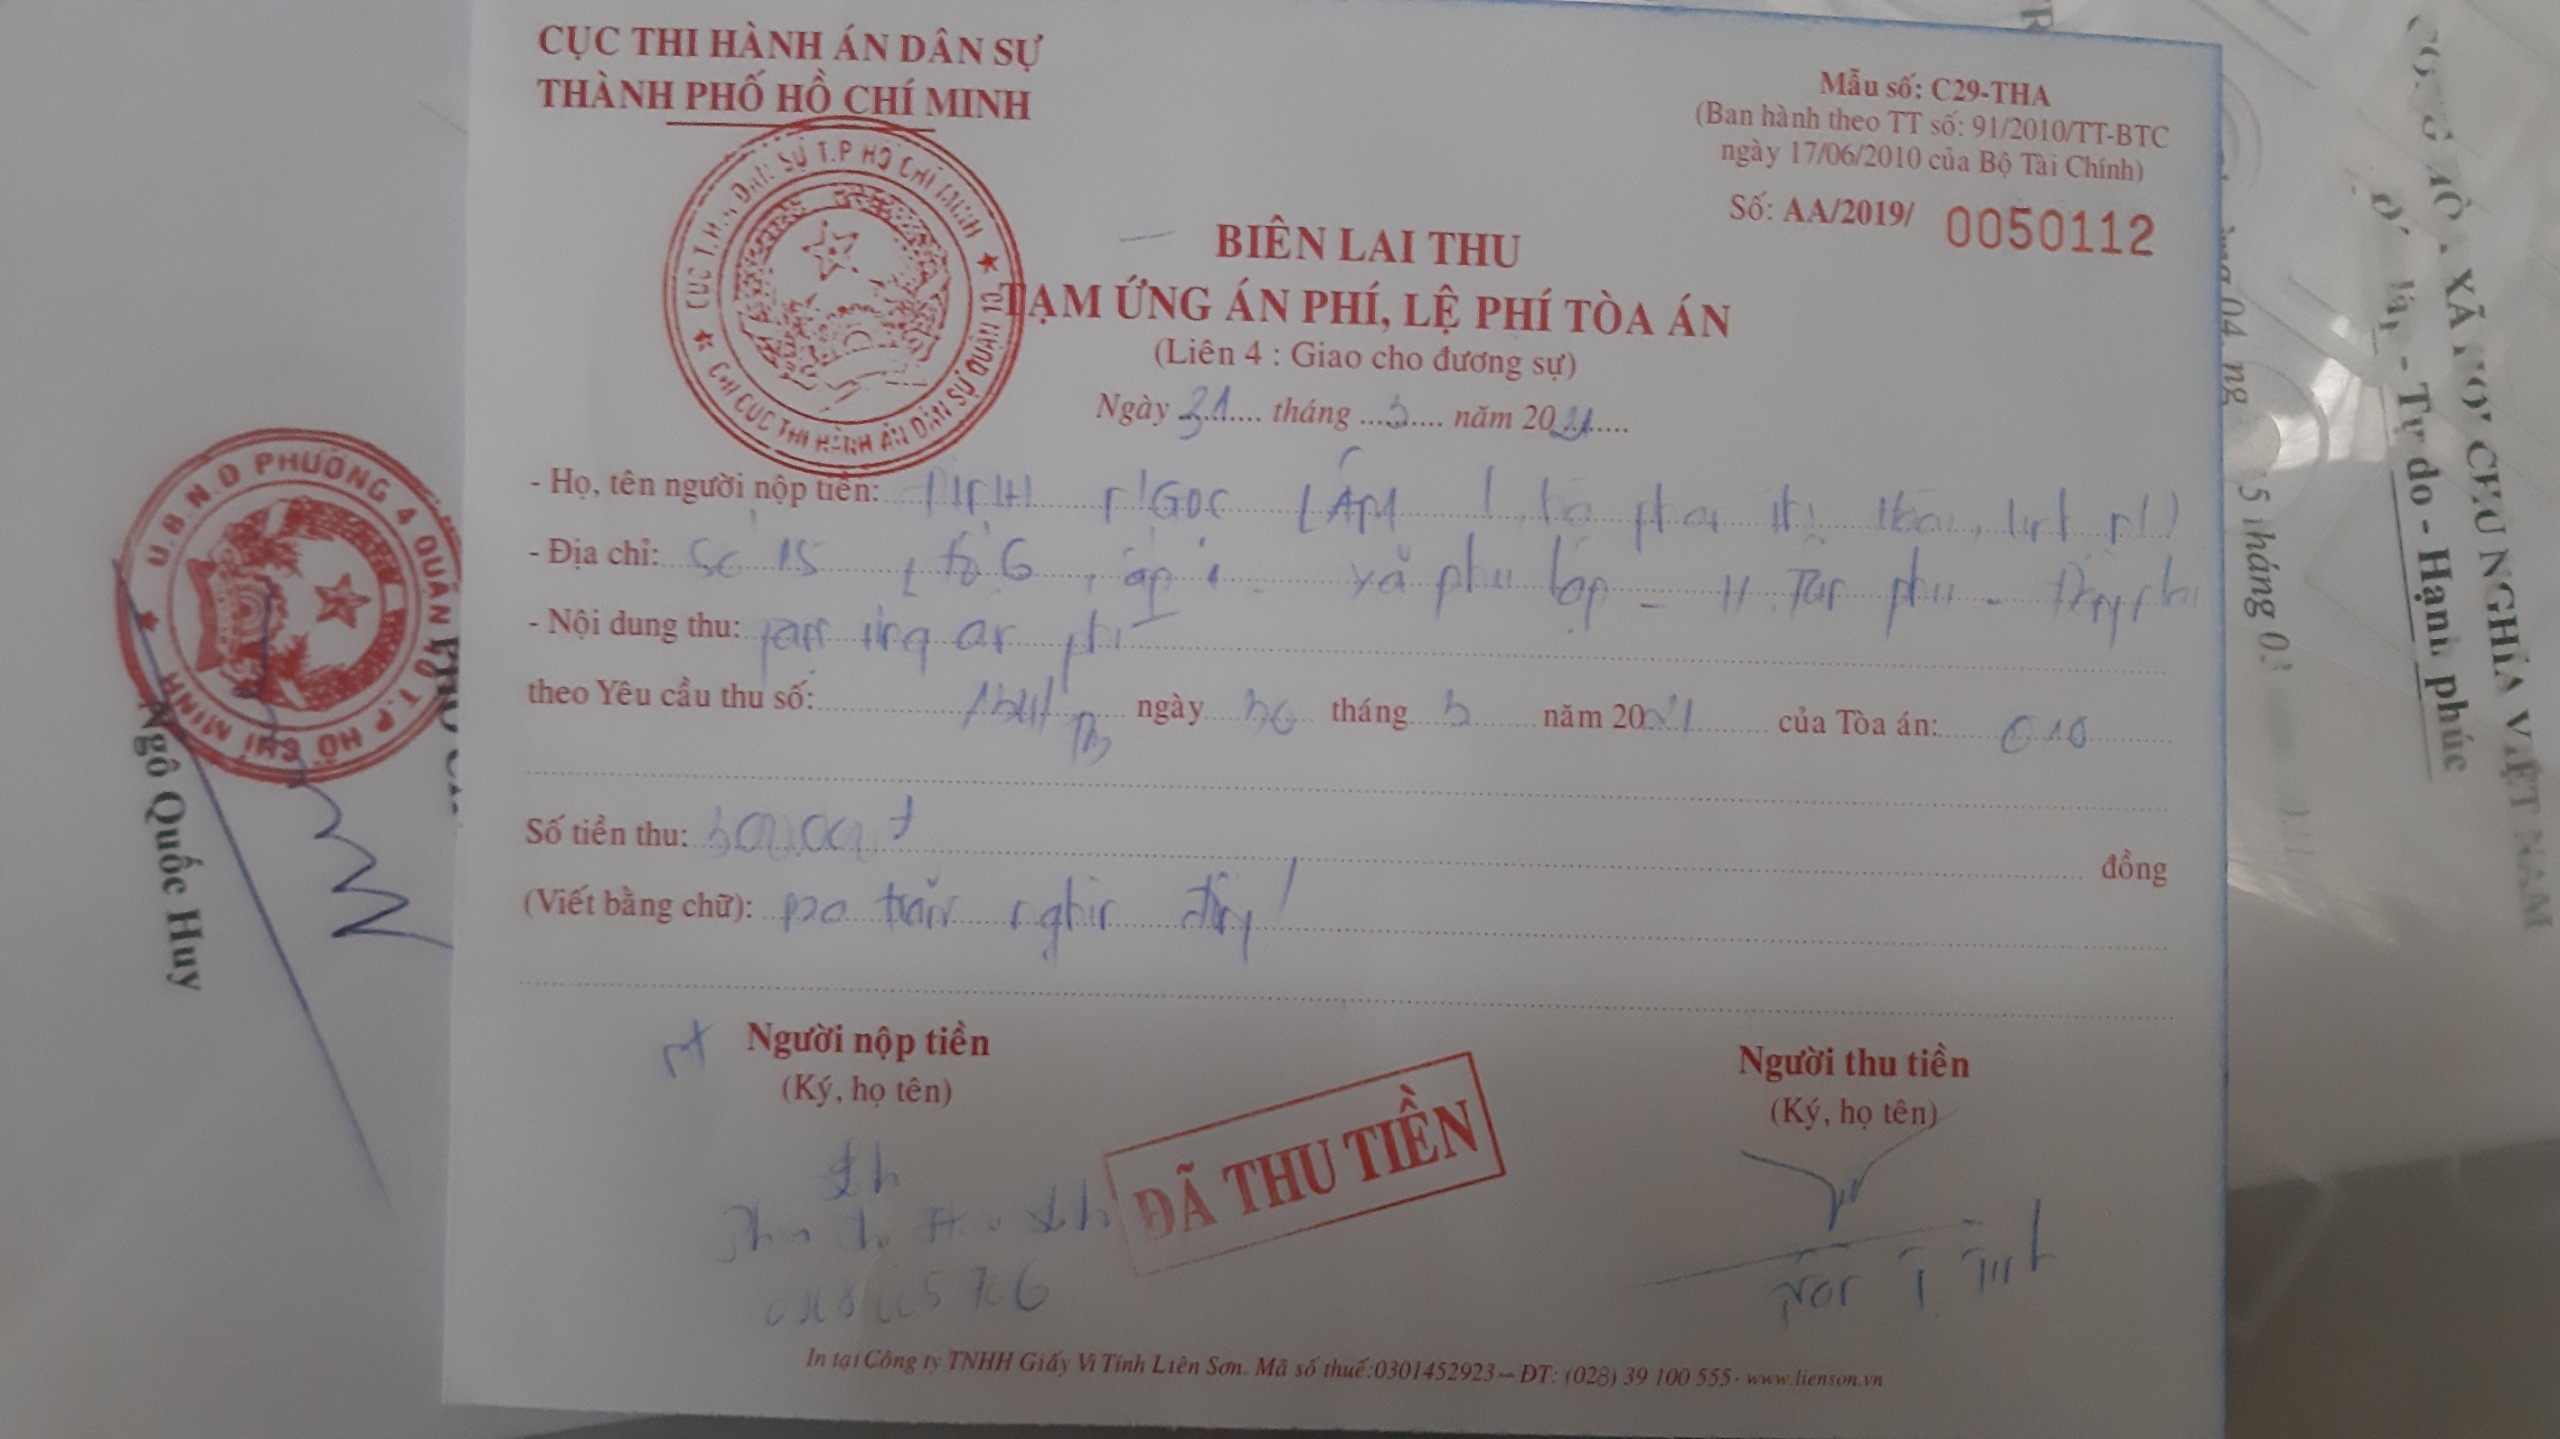 CỤC THI HÀNH ÁN DÂN SỰ
THÀNH PHỐ HỒ CHÍ MINH
Mẫu số: C29-THA
(Ban hành theo TT số: 91/2010/TT-BTC
ngày 17/06/2010 của Bộ Tài Chính)
Số: AA/2019/ 0050112
CỤC T.H.A DÂN SỰ T.P HỒ CHÍ MINH
CHI CỤC THI HÀNH ÁN DÂN SỰ QUẬN 10
BIÊN LAI THU
TẠM ỨNG ÁN PHÍ, LỆ PHÍ TÒA ÁN
(Liên 4 : Giao cho đương sự)
Ngày 31 tháng 3 năm 2021
- Họ, tên người nộp tiền: ĐINH NGỌC LÂM
- Địa chỉ: Số 15, tổ 6, ấp 1 - xã phú lập - H. Tân phú - Đồng Nai
- Nội dung thu: tạm ứng án phí
theo Yêu cầu thu số: ngày 30 tháng 3 năm 2021 của Tòa án: Q10
Số tiền thu: 300.000đ đồng
(Viết bằng chữ): Ba trăm nghìn đồng
Người nộp tiền
(Ký, họ tên)
Người thu tiền
(Ký, họ tên)
ĐÃ THU TIỀN
In tại Công ty TNHH Giấy Vi Tính Liên Sơn. Mã số thuế:0301452923 – ĐT: (028) 39 100 555 - www.lienson.vn
U.B.N.D PHƯỜNG 4 QUẬN 10 T.P HỒ CHÍ MINH
Ngô Quốc Huy
CỘNG HÒA XÃ HỘI CHỦ NGHĨA VIỆT NAM
Độc lập - Tự do - Hạnh phúc